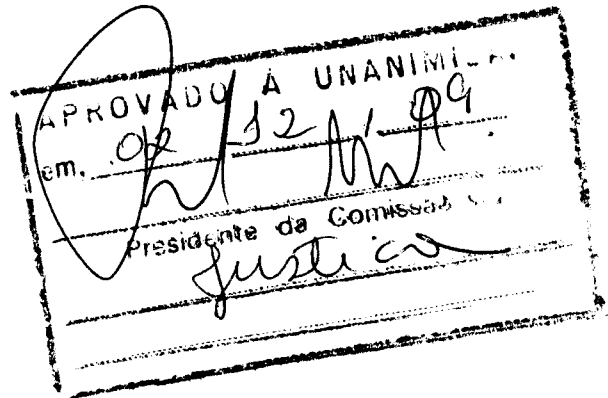 APROVADO À UNANIMI
em. 02 / 12 / 99
Presidente da Comissão
Justiça